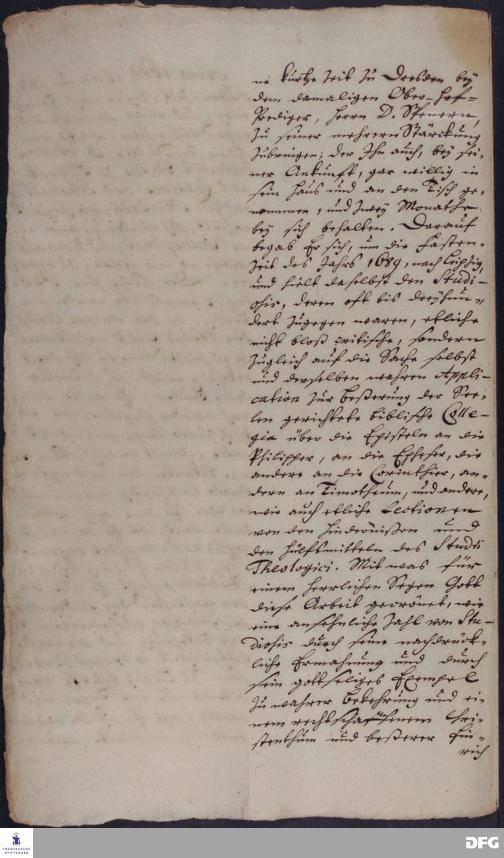 ne kurtze Zeit zu Dresden bey
dem damaligen Ober-Hof-
Prediger, Herrn D. Spenern,
zu seiner mehrern Stärckung
zubringen; der Ihn auch, bey sei-
ner Ankunfft, gar willig in
sein Haus und an den Tisch ge-
nommen, und zwey Monathe
bey sich behalten. Darauf
begab Er sich, um die Fasten-
Zeit des Jahrs 1689, nach Leipzig,
und hielt daselbst den Studi-
osis, deren offt bis dreyhun-
dert zugegen waren, etliche
nicht bloß critische, sondern
zugleich auf die Sache selbst
und derselben wahren Appli-
cation zur Beßerung der See-
len gerichtete biblische Colle-
gia über die Episteln an die
Philipper, an die Epheser, die
andere an die Corinthier, an-
dern an Timotheum, und andere,
wie auch etliche Lectionen
von den Hindernißen und
den Hülfsmitteln des Studii
Theologici. Mit was für
einem herrlichen Segen Gott
diese Arbeit gecrönet, wie
eine ansehnliche Zahl von Stu-
diosis durch seine nachdrück-
liche Ermahnung und durch
sein gottseliges Exempel
zu wahrer Bekehrung und ei-
nem rechtschaffenem Chri-
stenthum und beßerer Ein-
rich
FRANCKESCHE
STIFTUNGEN
DFG